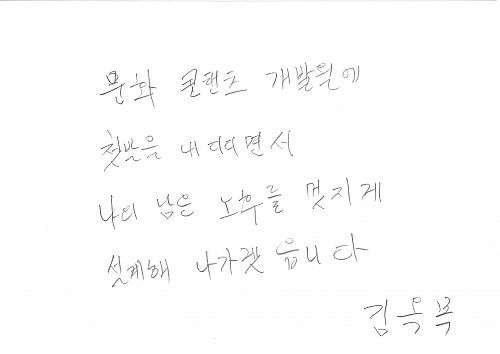 문화 콘텐츠 개발원에
첫발을 내 디디면서
나의 남은 노후를 멋지게
설계해 나가겟 읍니다
김옥복